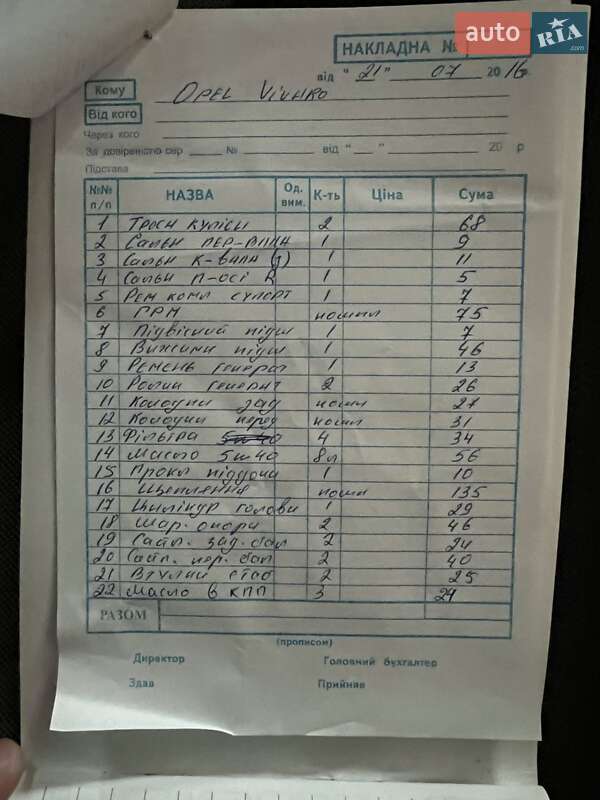 auto RIA .com
НАКЛАДНА №
від " 21 " 07 20 16 р.
Кому Opel Vivaro
Від кого
Через кого
За довіреністю сер. № від " " 20 р
Підстава
№№ п/п НАЗВА Од. вим. К-ть Ціна Сума
1 Троси куліси 2 68
2 Сальн пер-вала 1 9
3 Сальн к-вала (з) 1 11
4 Сальн п-осі R 1 5
5 Рем комл супорт 1 7
6 ГРМ компл 75
7 Підвісний підш 1 7
8 Вижимн підш 1 46
9 Ремень генерат 1 13
10 Ролик генерат 2 26
11 Колодки зад компл 27
12 Колодки перед компл 31
13 Фільтра 4 34
14 Масло 5w40 8л 56
15 Прокл піддона 1 10
16 Щеплення компл 135
17 Циліндр головн 1 29
18 Шар. опори 2 46
19 Сайл. зад. бал 2 24
20 Сайл. пер. бал 2 40
21 Втулки стаб 2 25
22 Масло в КПП 3 24
РАЗОМ
(прописом)
Директор Головний бухгалтер
Здав Прийняв